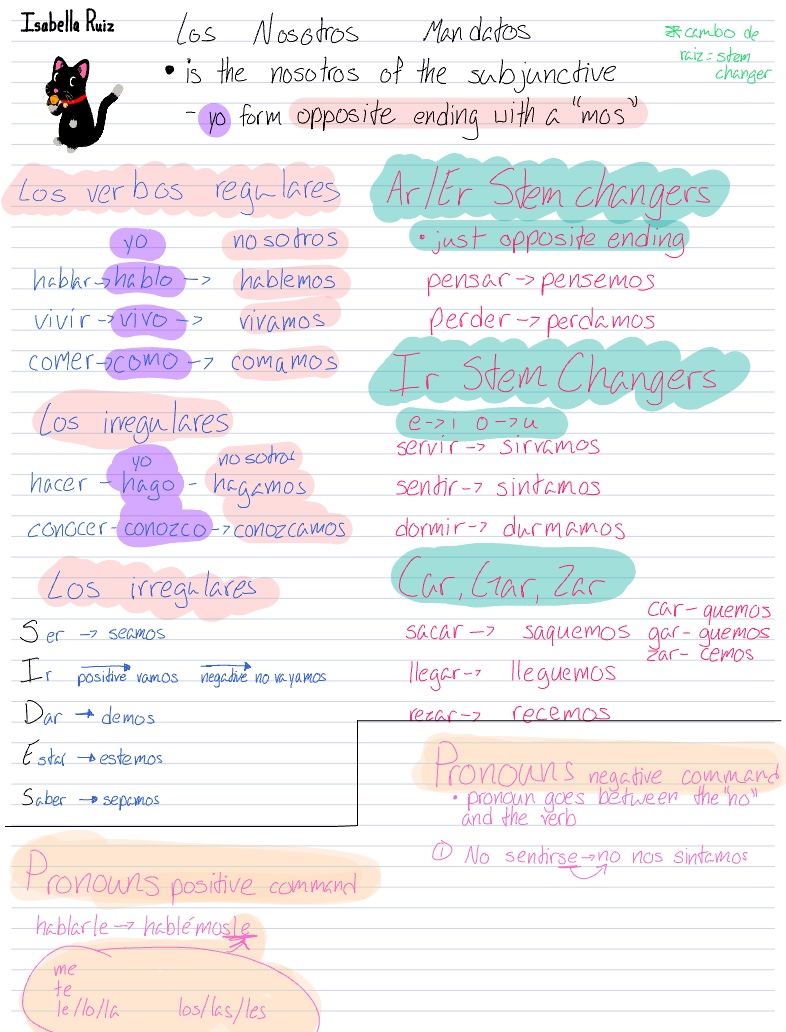 Isabella Ruiz
Los Nosotros Mandatos
* cambo de
raiz = stem
changer
• is the nosotros of the subjunctive
- yo form opposite ending with a "mos"
Los verbos regulares
yo nosotros
hablar -> hablo -> hablemos
vivir -> vivo -> vivamos
comer -> como -> comamos
Los irregulares
yo nosotros
hacer - hago - hagamos
conocer - conozco -> conozcamos
Los irregulares
Ser -> seamos
Ir positive vamos negative no vayamos
Dar -> demos
Estar -> estemos
Saber -> sepamos
Ar/Er Stem changers
• just opposite ending
pensar -> pensemos
perder -> perdamos
Ir Stem Changers
e -> i o -> u
servir -> sirvamos
sentir -> sintamos
dormir -> durmamos
Car, Gar, Zar
car - quemos
sacar -> saquemos gar - guemos
zar - cemos
llegar -> lleguemos
rezar -> recemos
Pronouns negative command
• pronoun goes between the "no"
and the verb
① No sentirse -> no nos sintamos
Pronouns positive command
hablarle -> hablémosle
me
te
le/lo/la los/las/les